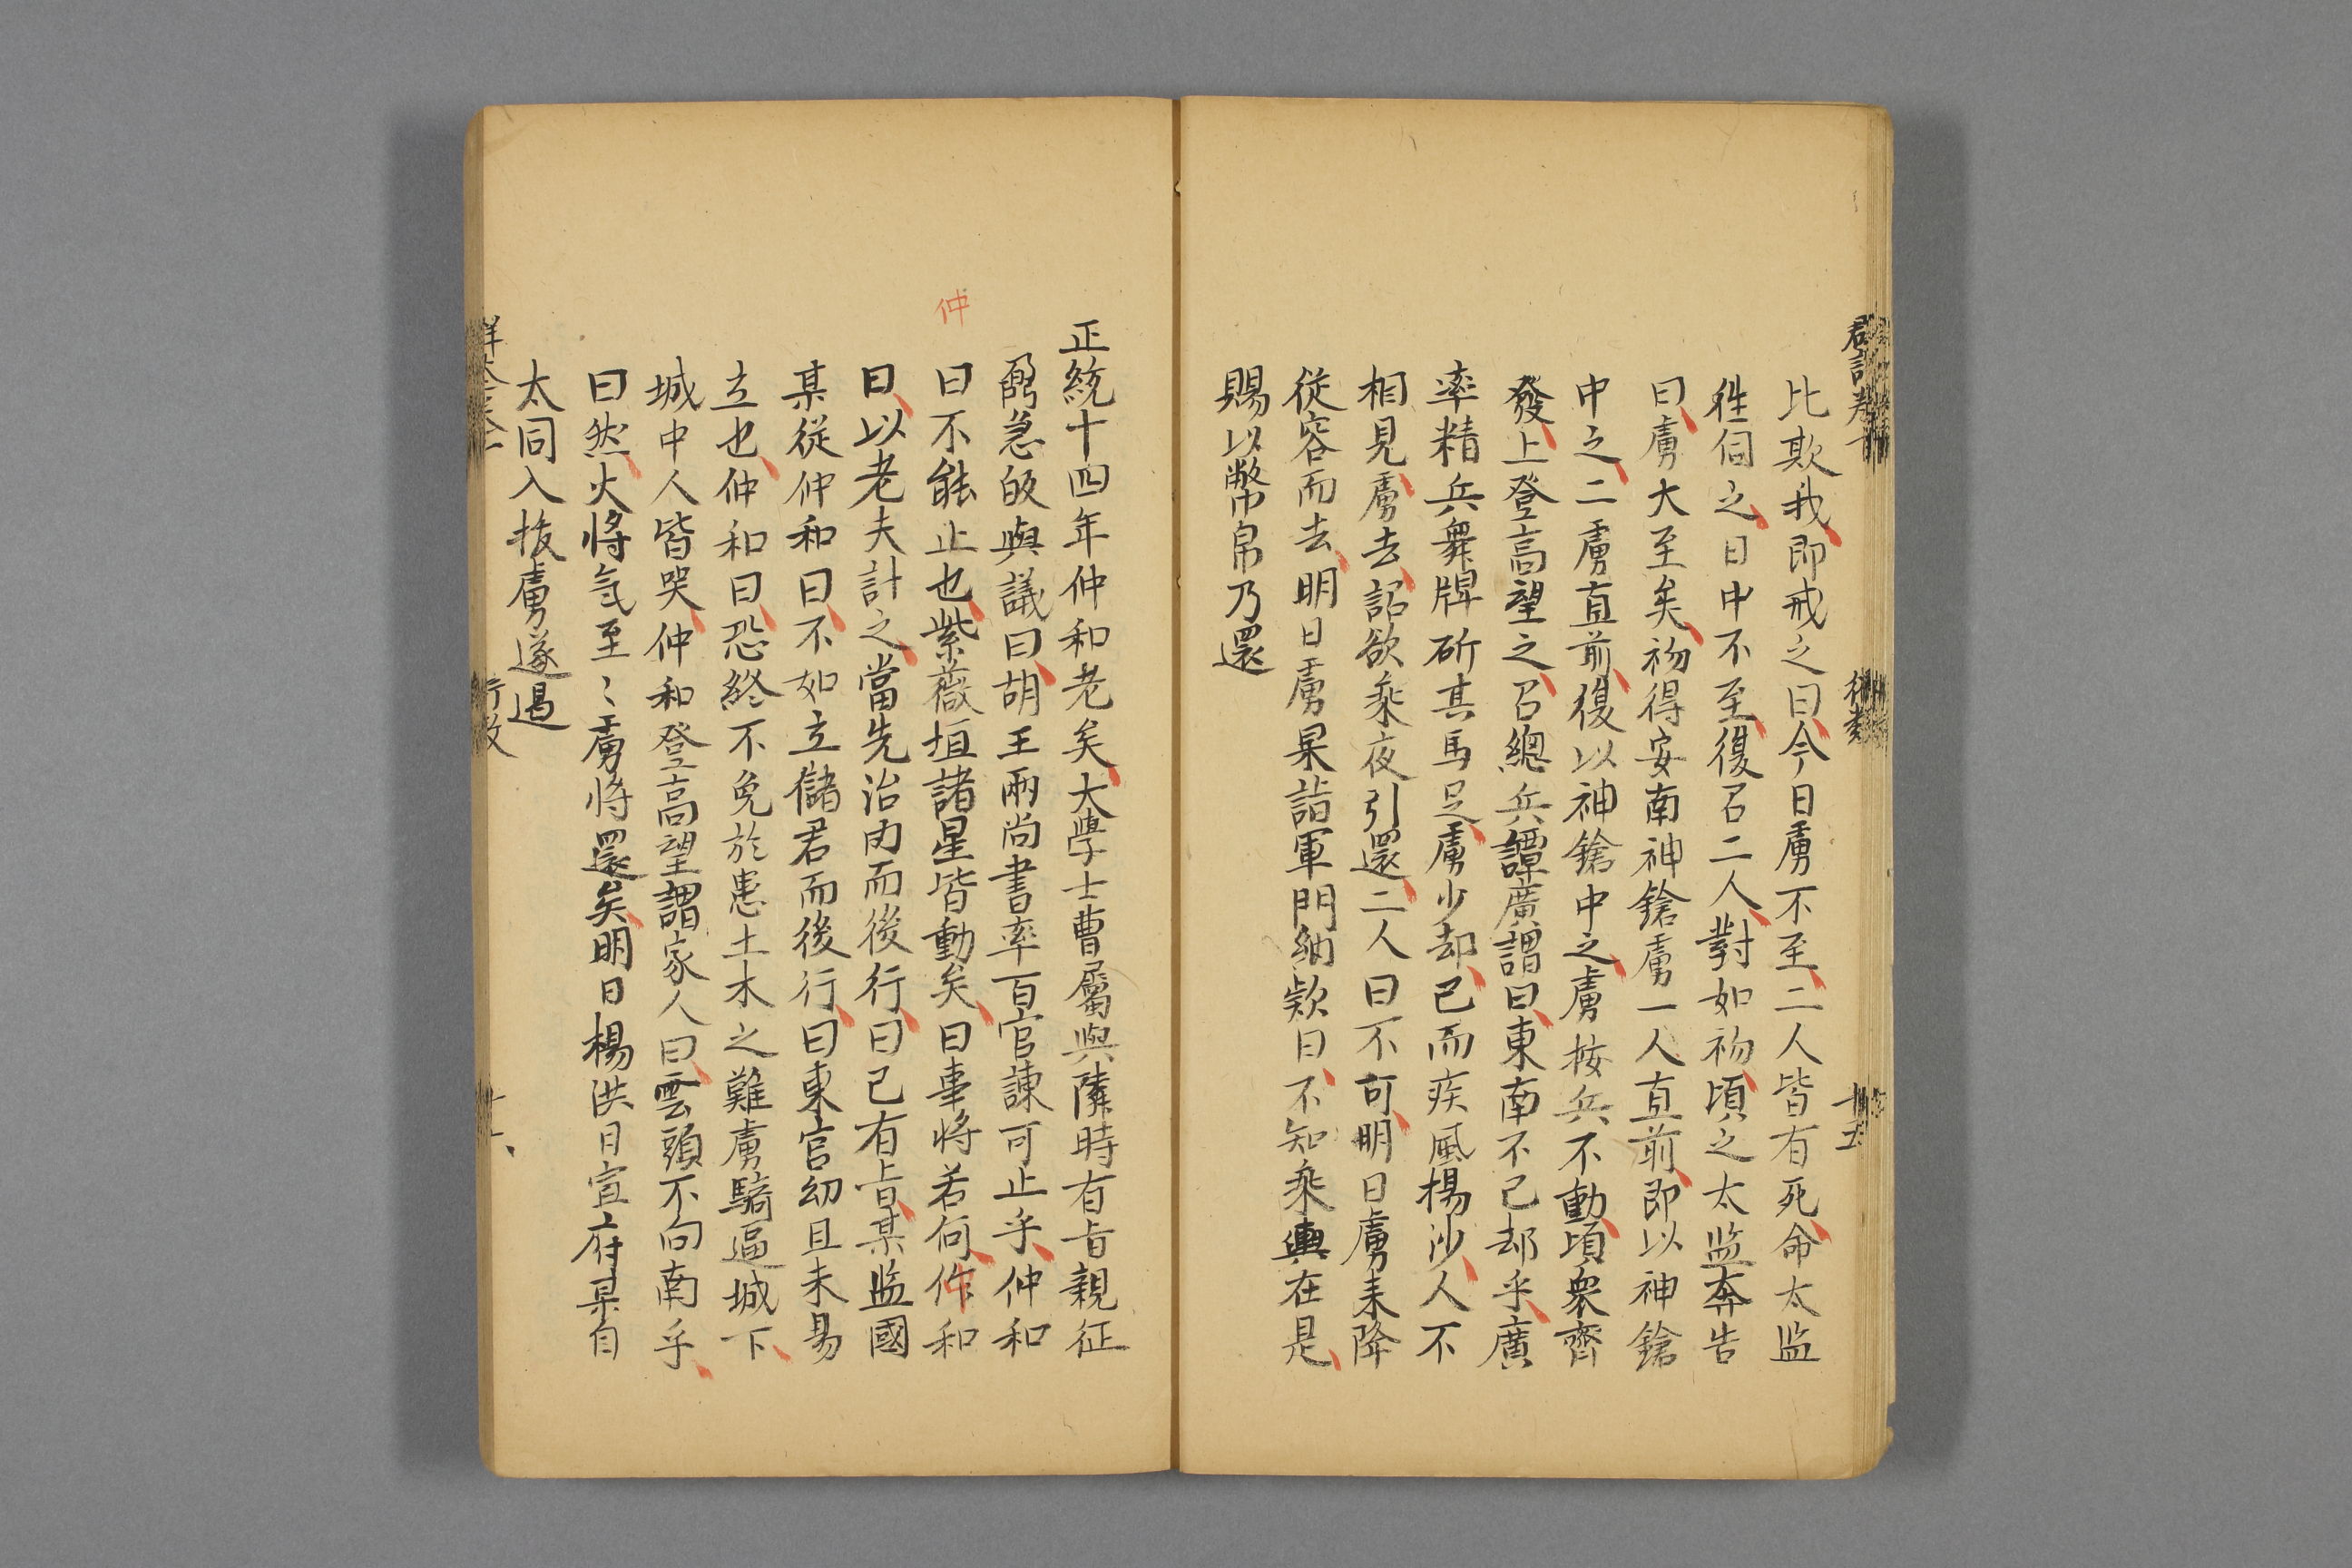 比欺我即戒之曰今日虜不至二人皆有死命太监
徃伺之日中不至復召二人對如初頃之太监奔告
曰虜大至矣初得安南神鎗虜一人直前即以神鎗
中之二虜直前復以神鎗中之虜按兵不動頃衆齊
發上登高望之召總兵譚廣謂曰東南不已却乎廣
率精兵舞牌斫其馬足虜少却已而疾風楊沙人不
相見虜去詔欲乘夜引還二人曰不可明日虜来降
従容而去明日虜果詣軍門納欵曰不知乘輿在是
賜以幣帛乃還
正統十四年仲和老矣大學士曹鼐與隣時有旨親征
鼐急皈與議曰胡王兩尚書率百官諫可止乎仲和
曰不能止也紫薇垣諸星皆動矣曰事将若何作和
仲
曰以老夫計之當先治内而後行曰已有旨某监國
某従仲和曰不如立儲君而後行曰東宫幼且未易
立也仲和曰恐終不免於患土木之難虜騎逼城下
城中人皆哭仲和登高望謂家人曰雲頭不向南乎
曰然火将气至〻虜将還矣明日楊洪日宣府某自
太同入援虜遂遏